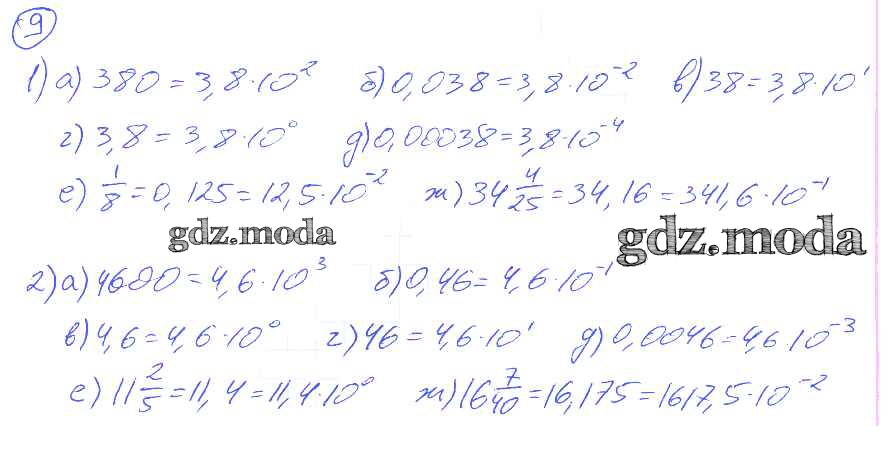 9
1) а) 380 = 3,8·10² б) 0,038 = 3,8·10⁻² в) 38 = 3,8·10¹
г) 3,8 = 3,8·10⁰ д) 0,00038 = 3,8·10⁻⁴
е) 1/8 = 0,125 = 12,5·10⁻² ж) 34 4/25 = 34,16 = 341,6·10⁻¹
gdz.moda
gdz.moda
2) а) 4600 = 4,6·10³ б) 0,46 = 4,6·10⁻¹
в) 4,6 = 4,6·10⁰ г) 46 = 4,6·10¹ д) 0,0046 = 4,6·10⁻³
е) 11 2/5 = 11,4 = 11,4·10⁰ ж) 16 7/40 = 16,175 = 1617,5·10⁻²